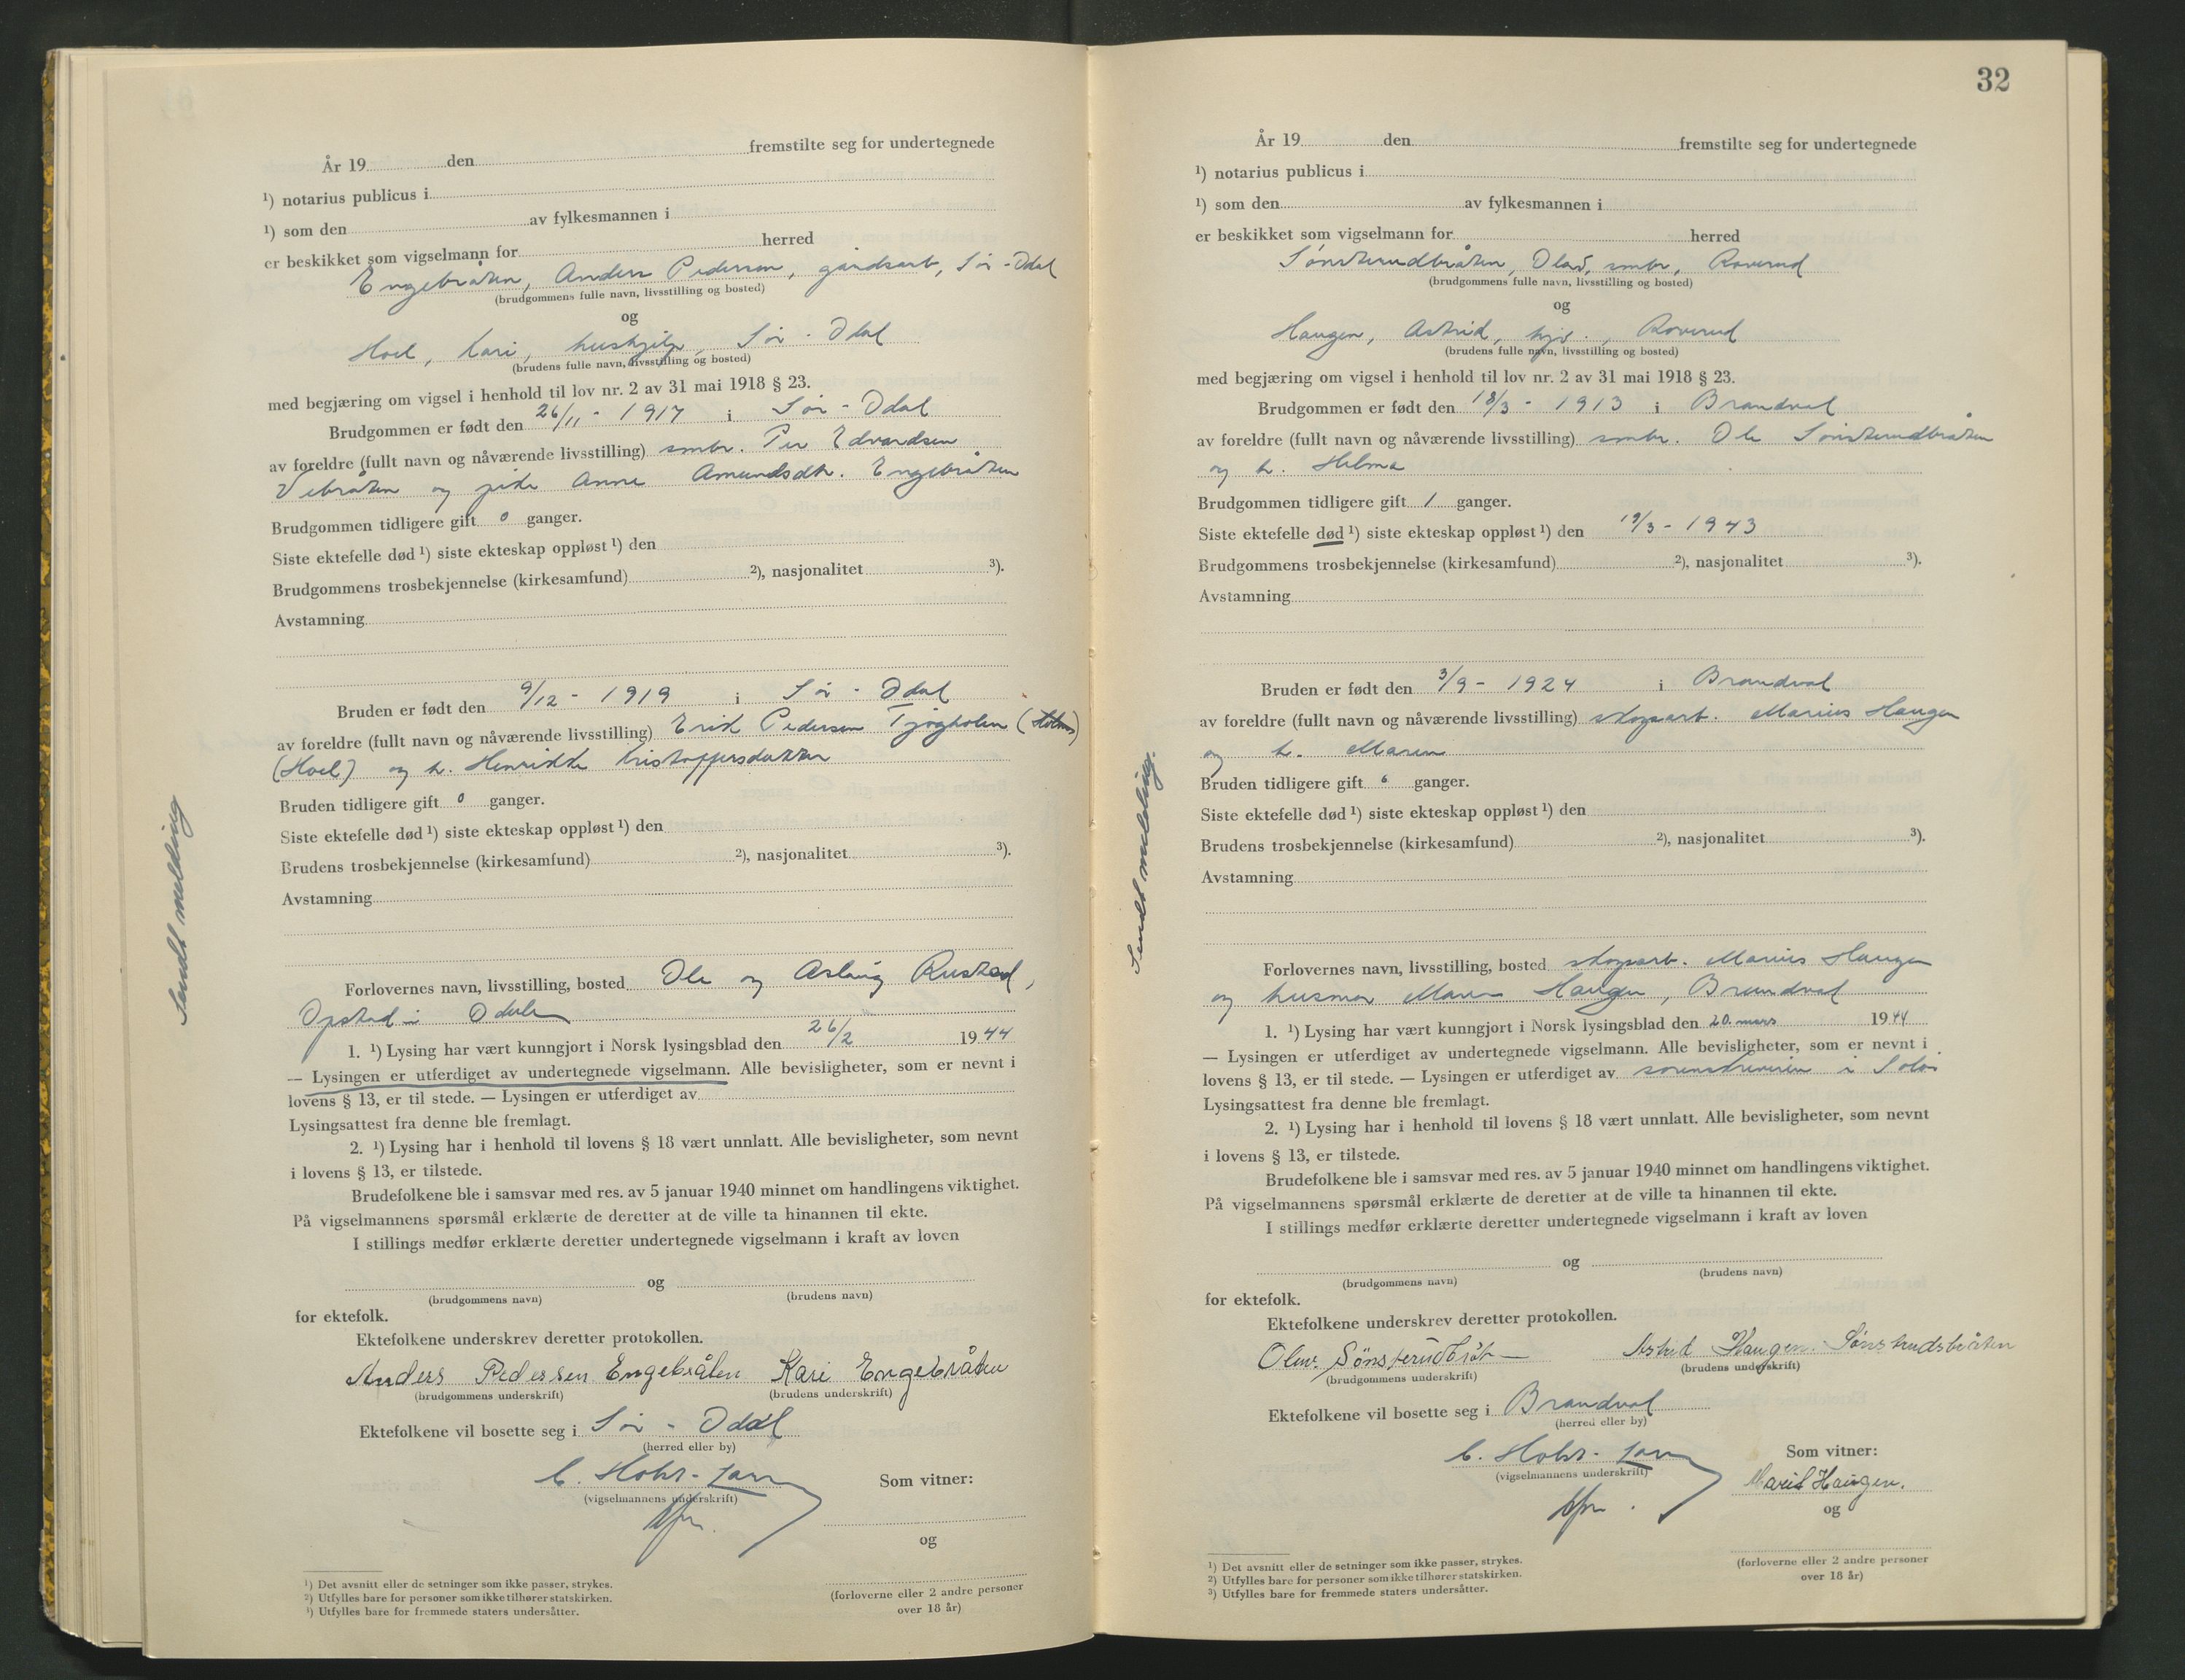 År 19 den fremstilte seg for undertegnede
¹) notarius publicus i
¹) som den av fylkesmannen i
er beskikket som vigselmann for herred
Engebråten, Anders Pedersen, gårdsarb, Sör-Odal
(brudgommens fulle navn, livsstilling og bosted)
og
Hoel, Kari, hushjelp, Sör-Odal
(brudens fulle navn, livsstilling og bosted)
med begjæring om vigsel i henhold til lov nr. 2 av 31 mai 1918 § 23.
Brudgommen er født den 26/11 - 1917 i Sör-Odal
av foreldre (fullt navn og nåværende livsstilling) smbr. Per Edvardsen
Vebråten og pike Anne Amundsdtr. Engebråten
Brudgommen tidligere gift 0 ganger.
Siste ektefelle død ¹) siste ekteskap oppløst ¹) den
Brudgommens trosbekjennelse (kirkesamfund) ²), nasjonalitet ³).
Avstamning
Bruden er født den 9/12 - 1919 i Sör-Odal
av foreldre (fullt navn og nåværende livsstilling) Erik Pedersen
(Hoel) og h. Henrikke Kristoffersdatter
Bruden tidligere gift 0 ganger.
Siste ektefelle død ¹) siste ekteskap oppløst ¹) den
Brudens trosbekjennelse (kirkesamfund) ²), nasjonalitet ³).
Avstamning
Forlovernes navn, livsstilling, bosted Ole og Aslaug Rustad,
Opstad i Odalen
1. ¹) Lysing har vært kunngjort i Norsk lysingsblad den 26/2 1944
— Lysingen er utferdiget av undertegnede vigselmann. Alle bevisligheter, som er nevnt i
lovens § 13, er til stede. — Lysingen er utferdiget av
Lysingsattest fra denne ble fremlagt.
2. ¹) Lysing har i henhold til lovens § 18 vært unnlatt. Alle bevisligheter, som nevnt
i lovens § 13, er tilstede.
Brudefolkene ble i samsvar med res. av 5 januar 1940 minnet om handlingens viktighet.
På vigselmannens spørsmål erklærte de deretter at de ville ta hinannen til ekte.
I stillings medfør erklærte deretter undertegnede vigselmann i kraft av loven
og
(brudgommens navn) (brudens navn)
for ektefolk.
Ektefolkene underskrev deretter protokollen.
Anders Pedersen Engebråten Kari Engebråten
(brudgommens underskrift) (brudens underskrift)
Ektefolkene vil bosette seg i Sör-Odal
(herred eller by)
C. Holst-
Som vitner:
(vigselmannens underskrift)
og
(forloverne eller 2 andre personer
over 18 år)
¹) Det avsnitt eller de setninger som ikke passer, strykes.
²) Utfylles bare for personer som ikke tilhører statskirken.
³) Utfylles bare for fremmede staters undersåtter.
Sendt melding
32
År 19 den fremstilte seg for undertegnede
¹) notarius publicus i
¹) som den av fylkesmannen i
er beskikket som vigselmann for herred
Sönsterudbråten, Olav, smbr, Roverud
(brudgommens fulle navn, livsstilling og bosted)
og
Haugen, Astrid, Roverud
(brudens fulle navn, livsstilling og bosted)
med begjæring om vigsel i henhold til lov nr. 2 av 31 mai 1918 § 23.
Brudgommen er født den 18/3 - 1913 i Brandval
av foreldre (fullt navn og nåværende livsstilling) smbr. Ole Sönsterudbråten
og h. Helma
Brudgommen tidligere gift 1 ganger.
Siste ektefelle død ¹) siste ekteskap oppløst ¹) den 19/3 - 1943
Brudgommens trosbekjennelse (kirkesamfund) ²), nasjonalitet ³).
Avstamning
Bruden er født den 3/9 - 1924 i Brandval
av foreldre (fullt navn og nåværende livsstilling) skogsarb. Marius Haugen
og h. Maren
Bruden tidligere gift 0 ganger.
Siste ektefelle død ¹) siste ekteskap oppløst ¹) den
Brudens trosbekjennelse (kirkesamfund) ²), nasjonalitet ³).
Avstamning
Forlovernes navn, livsstilling, bosted skogsarb. Marius Haugen
og husmor Maren Haugen, Brandval
1. ¹) Lysing har vært kunngjort i Norsk lysingsblad den 20. mars 1944
— Lysingen er utferdiget av undertegnede vigselmann. Alle bevisligheter, som er nevnt i
lovens § 13, er til stede. — Lysingen er utferdiget av sorenskriveren i Solör
Lysingsattest fra denne ble fremlagt.
2. ¹) Lysing har i henhold til lovens § 18 vært unnlatt. Alle bevisligheter, som nevnt
i lovens § 13, er tilstede.
Brudefolkene ble i samsvar med res. av 5 januar 1940 minnet om handlingens viktighet.
På vigselmannens spørsmål erklærte de deretter at de ville ta hinannen til ekte.
I stillings medfør erklærte deretter undertegnede vigselmann i kraft av loven
og
(brudgommens navn) (brudens navn)
for ektefolk.
Ektefolkene underskrev deretter protokollen.
Olav Sönsterudbråt Astrid Haugen Sönsterudsbråten
(brudgommens underskrift) (brudens underskrift)
Ektefolkene vil bosette seg i Brandval
(herred eller by)
C. Holst-
Som vitner:
(vigselmannens underskrift)
Marit Haugen.
og
(forloverne eller 2 andre personer
over 18 år)
¹) Det avsnitt eller de setninger som ikke passer, strykes.
²) Utfylles bare for personer som ikke tilhører statskirken.
³) Utfylles bare for fremmede staters undersåtter.
Sendt melding.